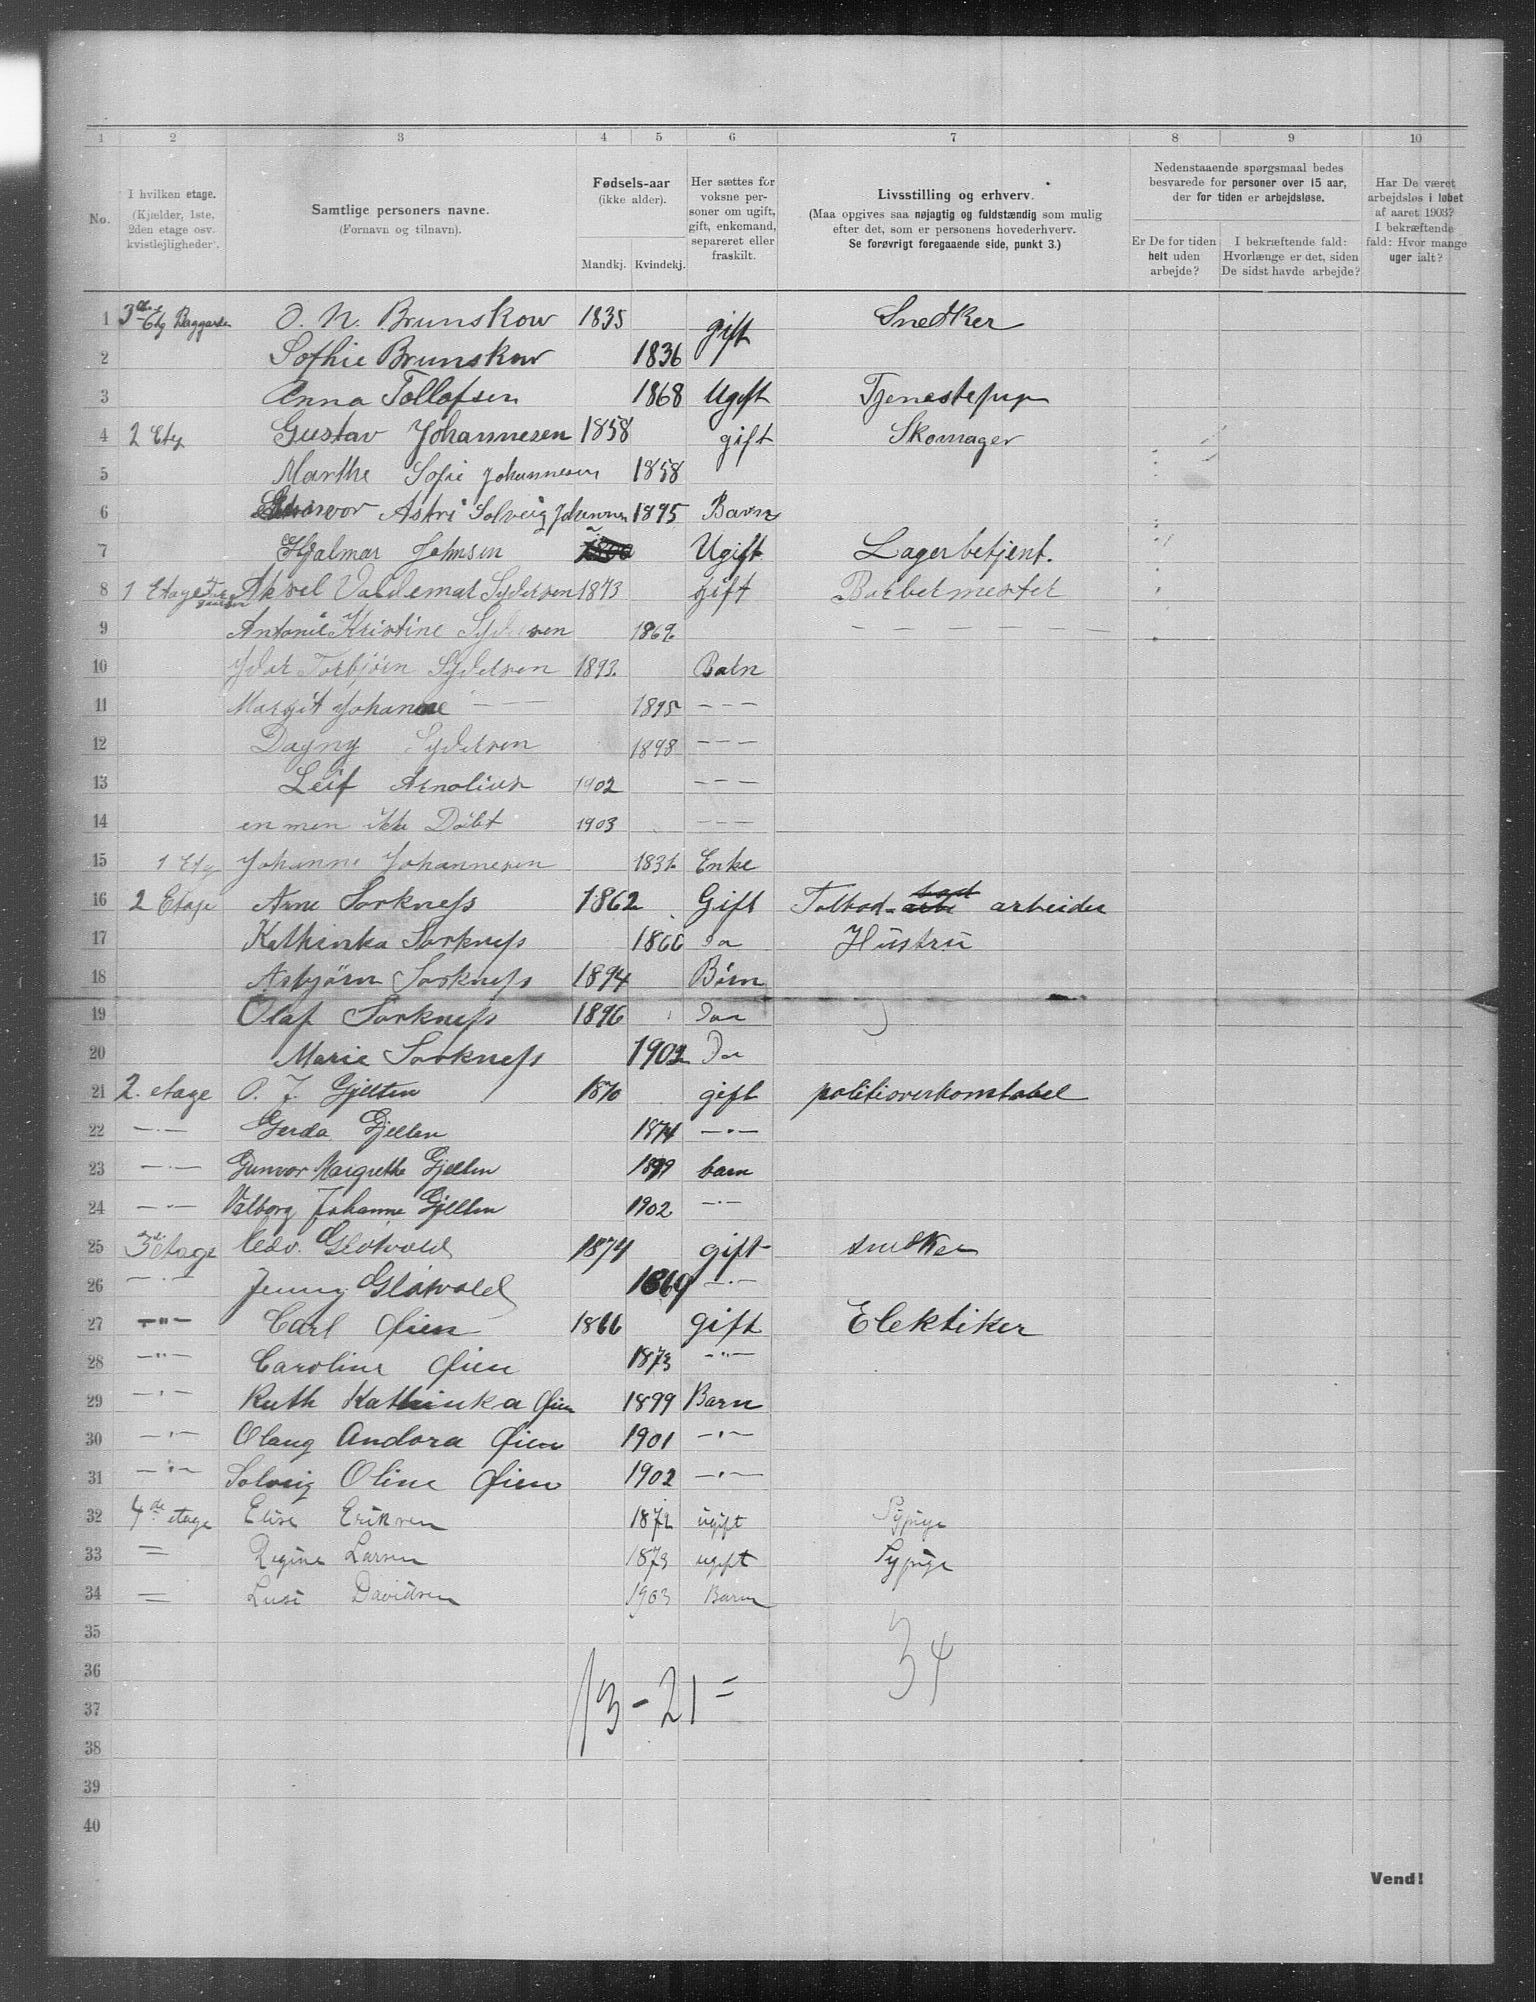 1 2 3 4 5 6 7 8 9 10
No.
I hvilken etage. (Kjælder, 1ste, 2den etage osv. kvistlejligheder).
Samtlige personers navne. (Fornavn og tilnavn).
Fødsels-aar (ikke alder).
Mandkj. Kvindekj.
Her sættes for voksne personer om ugift, gift, enkemand, separeret eller fraskilt.
Livsstilling og erhverv.
(Maa opgives saa nøjagtig og fuldstændig som mulig efter det, som er personens hovederhverv. Se forøvrigt foregaaende side, punkt 3.)
Nedenstaaende spørgsmaal bedes besvarede for personer over 15 aar, der for tiden er arbejdsløse.
Er De for tiden helt uden arbejde?
I bekræftende fald: Hvorlænge er det, siden De sidst havde arbejde?
Har De været arbejdsløs i løbet af aaret 1903? I bekræftende fald: Hvor mange uger ialt?
1 3die Etg Baggarden O. N. Brunskow 1835 gift Snedker
2 Sofhie Brunskow 1836
3 Anna Tollofsen 1868 Ugift Tjenestepige
4 2 Etg Gustav Johannesen 1858 gift Skomager
5 Marthe Sofie Johannesen 1858
6 Astri Solveig Johannesen 1895 Barn
7 Hjalmar Johnsen Ugift Lagerbetjent.
8 1 Etage Aksel Valdemar Sydersen 1873 gift Barbermester
9 Antonie Kristine Sydersen 1869 — — — — — —
10 Torbjørn Sydersen 1893. Barn
11 Margit Johanne — — 1895 – – –
12 Dagny Sydersen 1898 – – –
13 Leif Arnolius 1902 – – –
14 en men ikke Døbt 1903 – – –
15 1 Etg Johanne Johannesen 1831 Enke
16 2 Etage Arne Sorkness 1862 Gift Tolbod arbeider
17 Kathinka Sorkness 1866 Do Hustru
18 Asbjørn Sorkness 1894 Børn
19 Olaf Sorkness 1896 Do
20 Marie Sorkness 1902 Do
21 2. etage O. J. Gjelten 1870 gift politioverkonstabel
22 —·— Gerda Gjelten 1874 —·—
23 —·— Gunvor Margrethe Gjelten 1899 barn
24 —·— Valborg Johanne Gjelten 1902 —·—
25 3die etage Edv. Gløtvold 1874 gift snedker
26 —·— Jenny Gløtvold 1869 —·—
27 —"— Carl Øien 1866 gift Elektiker
28 —"— Caroline Øien 1873 —"—
29 —"— Ruth Kathinka Øien 1899 Barn
30 —"— Olaug Andora Øien 1901 —"—
31 —"— Solveig Oline Øien 1902 —"—
32 4de etage Elise Eriksen 1872 ugift Sypige
33 = Regine Larsen 1873 ugift Sypige
34 = Lusi Davidsen 1903 Barn
35 34
36
37 13 - 21 =
38
39
40
Vend!